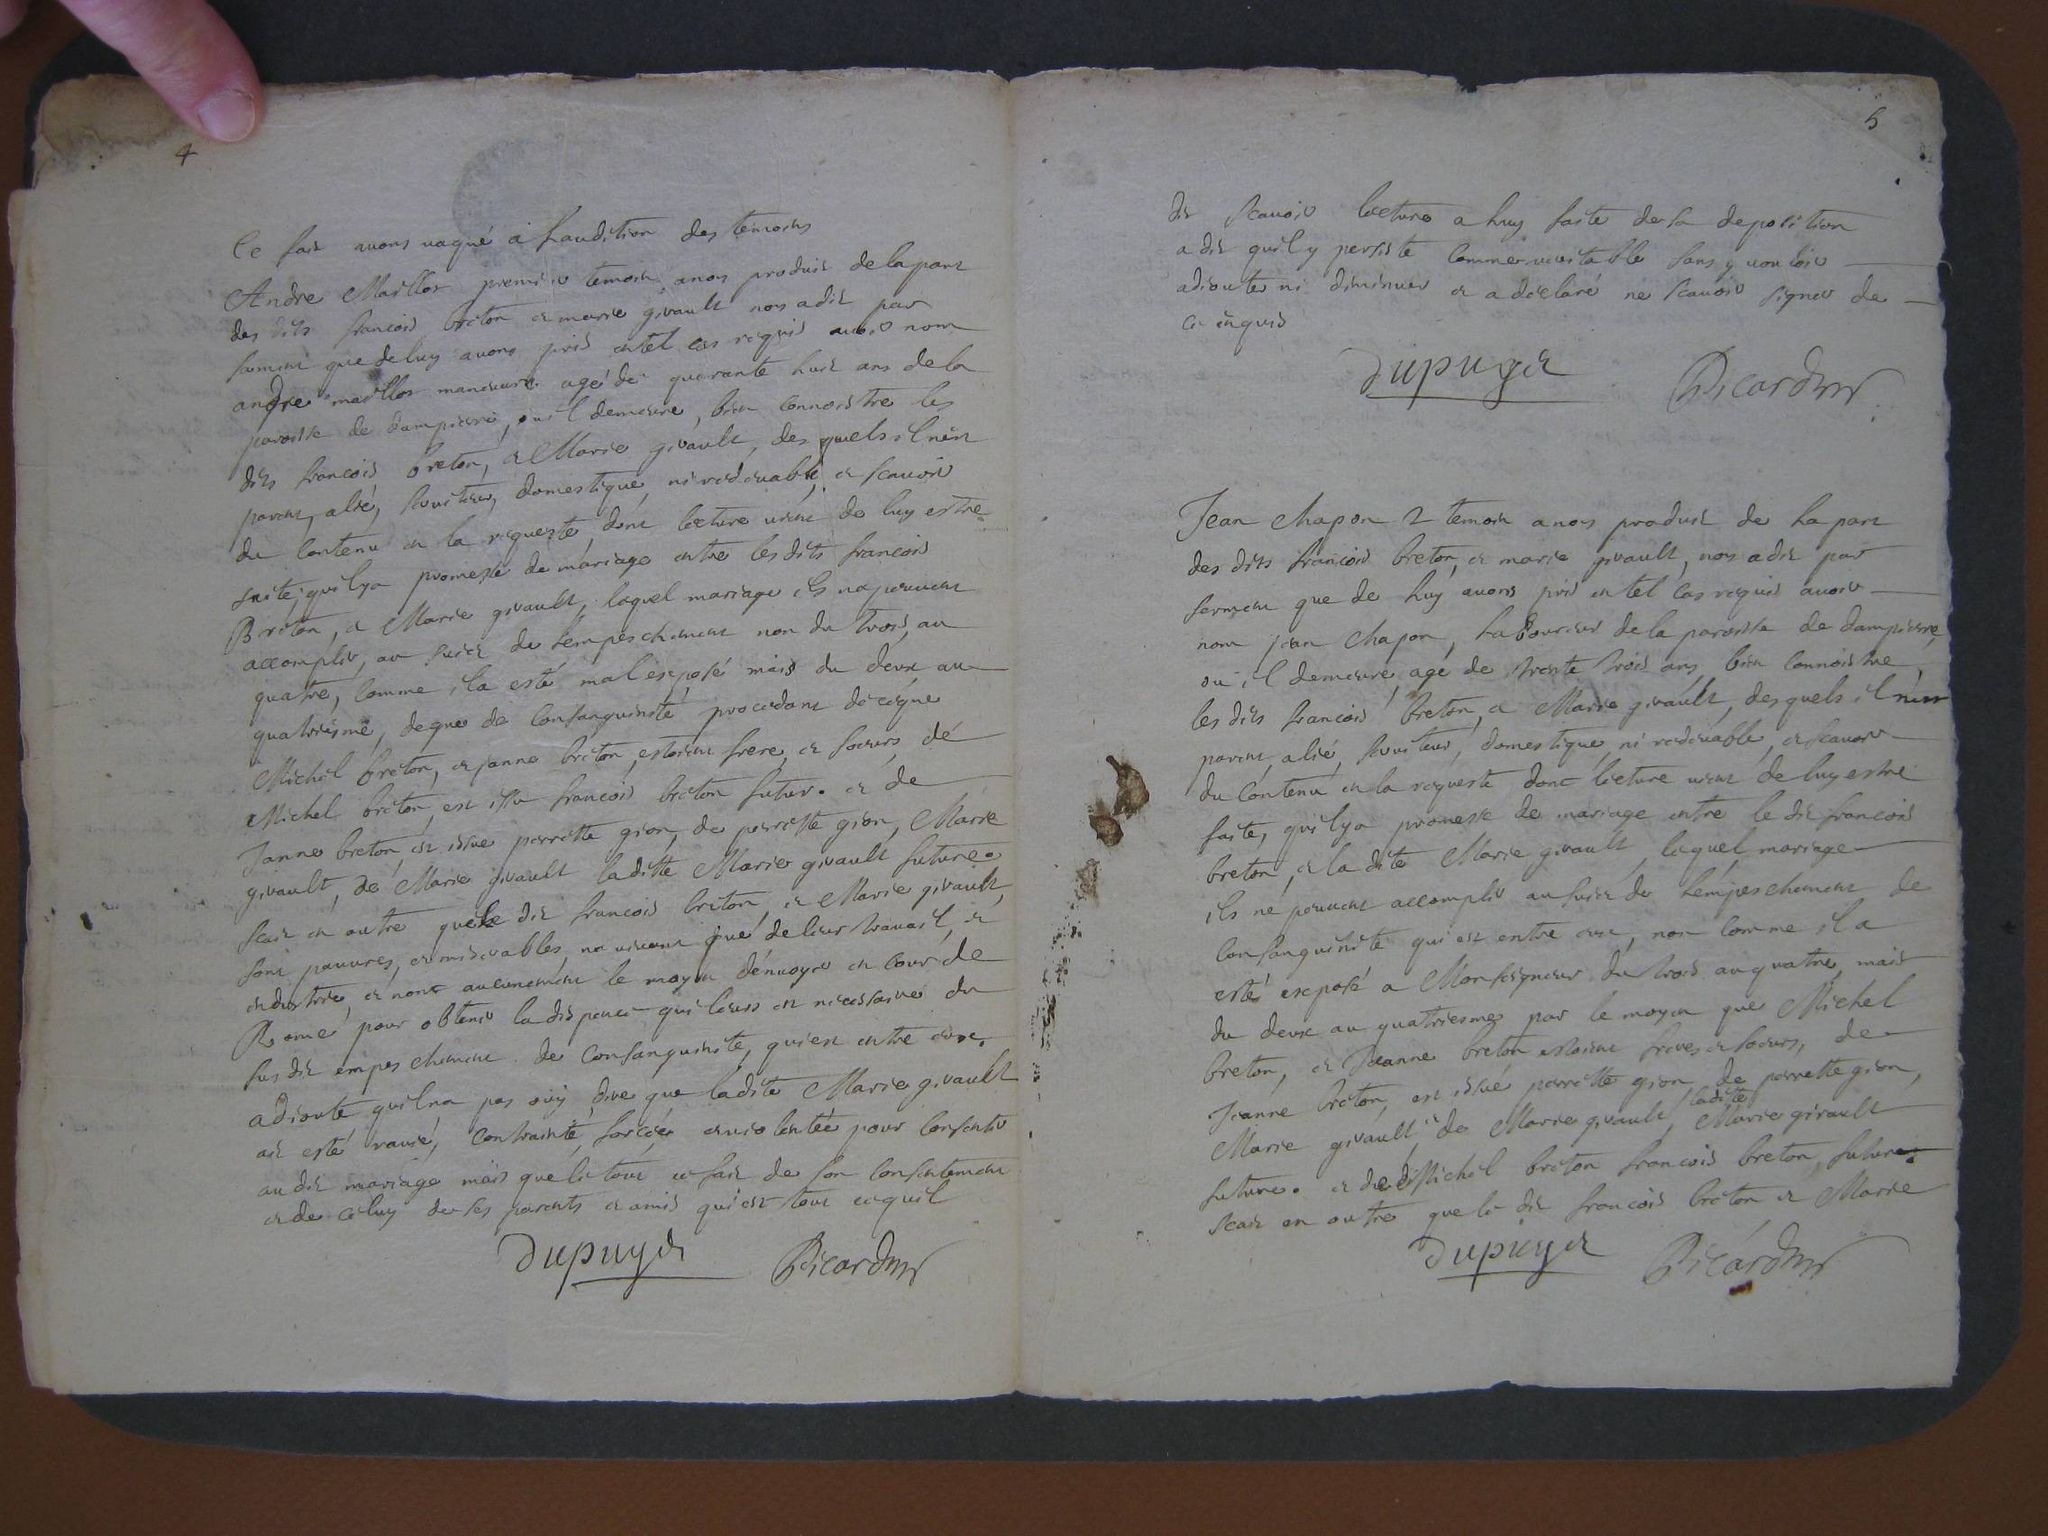 4
Ce fait avons vaqué a Laudition des temoins
Andre Maillot premier temoin anous produit de la part
des dits francois breton et marie givault nos adit par
serment que de luy avons pris en tel cas requis avoir nom
andre maillot manoeuvre agé de quarante huit ans de la
paroisse de dampierre, ou il demeure, bien connoistre les
dits francois breton, et Marie givault, des quels il nest
parent, alié, serviteur, domestique, ni redevable, et scavoir
du contenu en la requeste, dont lecture vient de luy estre
faite, quil ya promesse de mariage entre les dits francois
Breton, et Marie givault, lequel mariage ils ne peuvent
accomplir, au sujet de lempeschement non du trois, au
quatre, comme il a esté mal exposé mais du deux au
quatriesme, degré de consanguinité procedant de ce que
Michel breton, et janne breton, estoient frere, et soeurs, de
Michel breton, est issu francois breton futur. et de
Janne breton, est issue perrette gion, de perrette gion, Marie
givault, de Marie givault laditte Marie givault future.
scait en outre que le dit francois breton, et Marie givault,
sont pauvres, et miserables, ne vivant que de leur travail, et
industrie, et nont aucunement le moyen denvoyer en cour de
Rome pour obtenir la dispence qui leurs est necessaire du
sus dit empeschement de consanguinité, qui est entre eux.
adjoute quil na pas ouy dire que ladite Marie givault
ait esté ravie, contrainte, forcée, et violentée pour consentir
au dit mariage mais que le tout ce fait de son consentement
et de celuy de ses parents et amis qui est tout ce quil
Dupuyet Picard
5
dit scavoir lecture a luy faite de sa deposition
a dit quil y persiste comme veritable sans y vouloir
adjouter ni diminuer et a déclaré ne scavoir signer de
ce enquis
Dupuyet Picard
Jean chapon 2 temoin a nous produit de la part
des dits francois breton, et marie givault, nos a dit par
serment que de luy avons pris en tel cas requis avoir
nom jean chapon, laboureur de la paroisse de dampierre,
ou il demeure agé de trente trois ans, bien connoistre
les dits francois breton, et Marie givault, desquels il nest
parent, alié, serviteur, domestique, ni redevable, et scavoir
du contenu en la requeste dont lecture vient de luy estre
faite, quil ya promesse de mariage entre le dit francois
breton, et la dite Marie givault, lequel mariage
ils ne peuvent accomplir au sujet de lempeschement de
consanguinité qui est entre eux, non comme il a
esté exposé a Monseigneur du trois au quatre, mais
du deux au quatriesmes par le moyen que Michel
breton, et Jeanne breton estoient freres et soeurs, de
Jeanne breton, est issue perrette gion, de perrette gion,
Marie givault, de Marie givault, ladite Marie givault
future. et de Michel breton francois breton, futur.
scait en outre que le dit francois breton et Marie
Dupuyet Picard